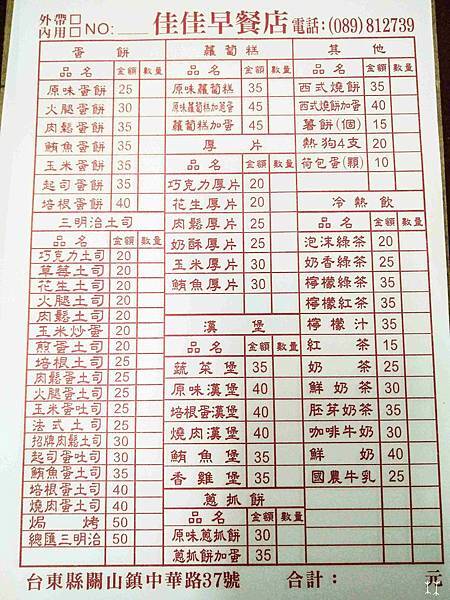 外帶□ 內用□ NO: 佳佳早餐店 電話:(089)812739
蛋餅
品名 金額 數量
原味蛋餅 25
火腿蛋餅 30
肉鬆蛋餅 35
鮪魚蛋餅 35
玉米蛋餅 35
起司蛋餅 35
培根蛋餅 40
三明治土司
品名 金額 數量
巧克力土司 20
草莓土司 20
花生土司 20
火腿土司 20
肉鬆土司 20
玉米炒蛋 20
煎蛋土司 20
培根土司 25
肉鬆蛋土司 25
火腿蛋土司 25
玉米蛋吐司 25
法式土司 25
招牌肉鬆土司 30
起司蛋吐司 30
鮪魚蛋土司 35
培根蛋土司 40
燒肉蛋土司 40
焗烤 50
總匯三明治 50
蘿蔔糕
品名 金額 數量
原味蘿蔔糕 35
原味蘿蔔糕加蔥蛋 45
蘿蔔糕加蛋 45
厚片
品名 金額 數量
巧克力厚片 20
花生厚片 20
肉鬆厚片 25
奶酥厚片 25
玉米厚片 30
鮪魚厚片 30
漢堡
品名 金額 數量
蔬菜堡 35
原味漢堡 40
培根蛋漢堡 40
燒肉漢堡 40
鮪魚堡 35
香雞堡 35
蔥抓餅
品名 金額 數量
原味蔥抓餅 30
蔥抓餅加蛋 35
其他
品名 金額 數量
西式燒餅 35
西式燒餅加蛋 40
薯餅(個) 15
熱狗4支 20
荷包蛋(顆) 10
冷熱飲
品名 金額 數量
泡沫綠茶 20
奶香綠茶 25
檸檬綠茶 35
檸檬紅茶 35
檸檬汁 35
紅茶 15
奶茶 25
鮮奶茶 30
胚芽奶茶 35
咖啡牛奶 30
鮮奶 40
國農牛乳 25
台東縣關山鎮中華路37號 合計: 元